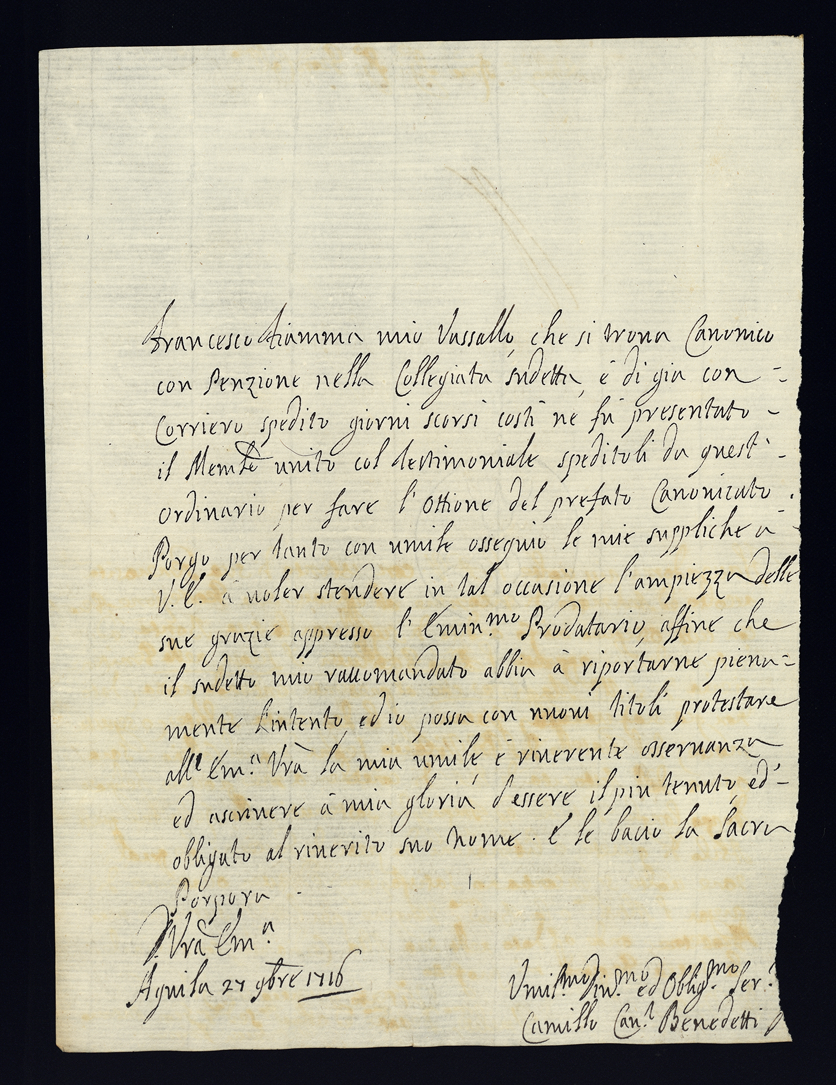 Francesco Fiamma mio Vassallo, che si trova Canonico
con Penzione nella Collegiata sudetta, è di già con =
Corriero spedito giorni scorsi costì ne fù presentato -
il Memle unito col testimoniale speditoli da quest' -
Ordinario per fare l'Ottione del prefato Canonicato.
Porgo per tanto con umile ossequio le mie suppliche à
V. E. à voler stendere in tal occasione l'ampiezza delle
sue grazie appresso l'Emin.mo Prodatario, affine che
il sudetto mio raccomandato abbia à riportarne piena=
mente l'intento, ed io possa con nuovi titoli protestare
all' Em.a Vrã la mia umile, è riverente osservanza
ed ascrivere à mia gloria, d'essere il più tenuto, ed' -
obligato al riverito suo nome. E le bacio la Sacra
Porpora
Vrã Em.a
Aquila 27 9bre 1716
Umil.mo Div.mo ed Oblig.mo Ser.
Camillo Can.l Benedetti